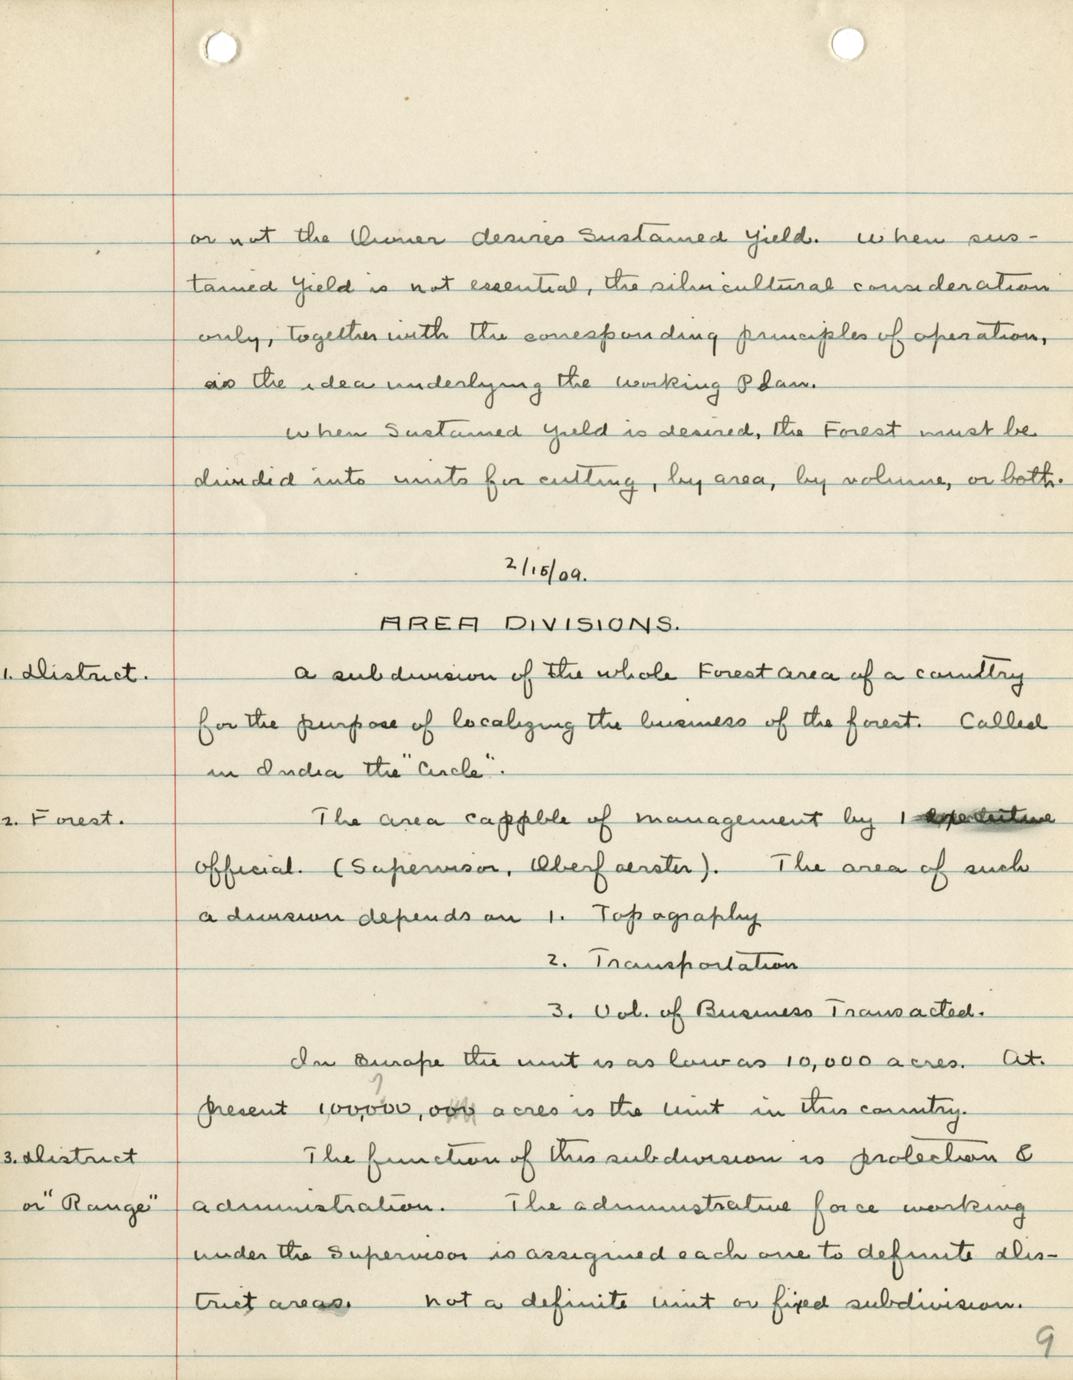 or not the Owner desires Sustained Yield. When sus-
tained Yield is not essential, the silvicultural consideration
only, together with the corresponding principles of operation,
is the idea underlying the Working Plan.
When Sustained Yield is desired, the Forest must be
divided into units for cutting, by area, by volume, or both.
2/15/09.
AREA DIVISIONS.
1. District. A subdivision of the whole Forest area of a country
for the purpose of localizing the business of the forest. Called
in India the "Circle".
2. Forest. The area cappble of management by 1
official. (Supervisor, Oberfoerster). The area of such
a division depends on 1. Topography
2. Transportation
3. Vol. of Business Transacted.
In Europe the unit is as low as 10,000 acres. At
?
present 100,000,000 acres is the unit in this country.
3. District The function of this subdivision is protection &
or "Range" administration. The administrative force working
under the Supervisor is assigned each one to definite dis-
trict areas. not a definite unit or fixed subdivision.
9